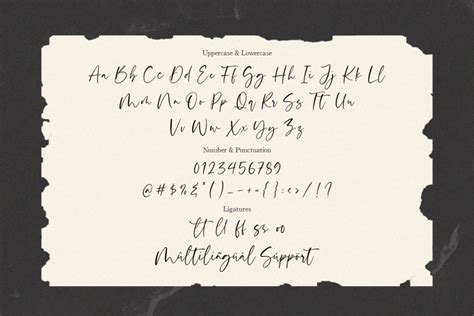 Uppercase & Lowercase
Aa Bb Cc Dd Ee Ff Gg Hh Ii Jj Kk Ll
Mm Nn Oo Pp Qq Rr Ss Tt Uu
Vv Ww Xx Yy Zz
Number & Punctuation
0123456789
@#$%&*()_-+={}:<>/!?
Ligatures
tt ll ff ss oo
Múltilíñgúál Süppôrt